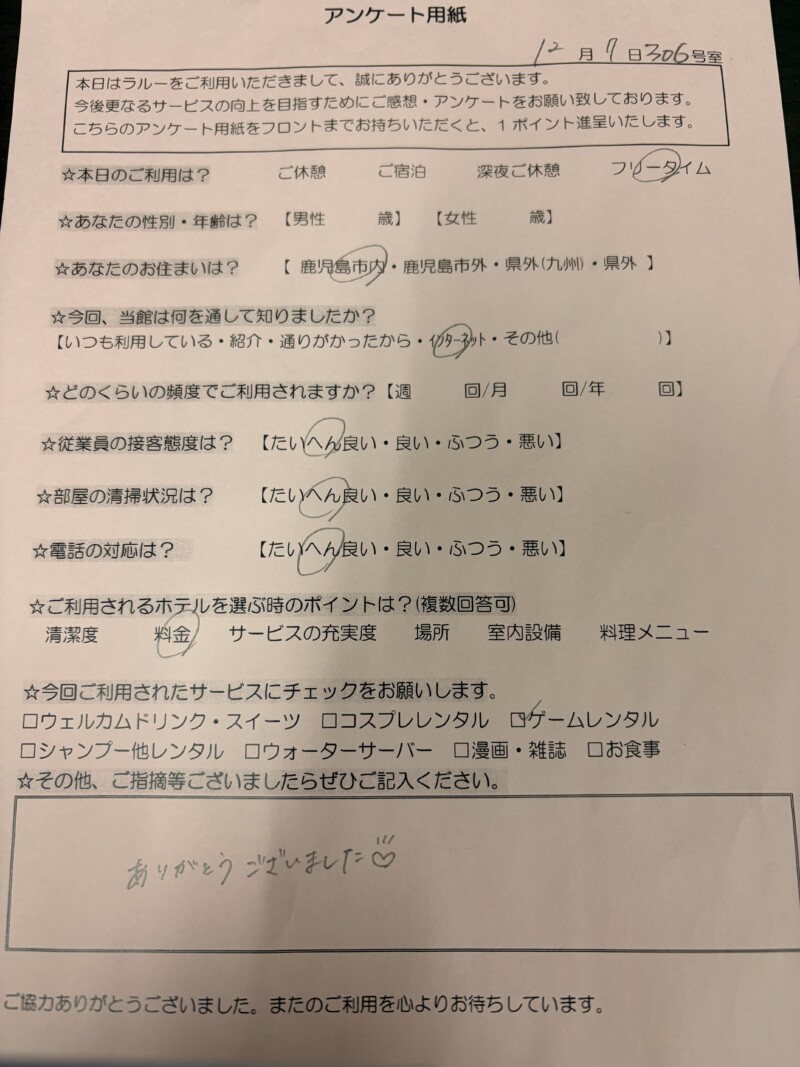 アンケート用紙
12月7日306号室
本日はラルーをご利用いただきまして、誠にありがとうございます。
今後更なるサービスの向上を目指すためにご感想・アンケートをお願い致しております。
こちらのアンケート用紙をフロントまでお持ちいただくと、1ポイント進呈いたします。
☆本日のご利用は？ ご休憩 ご宿泊 深夜ご休憩 フリータイム
☆あなたの性別・年齢は？ 【男性 歳】 【女性 歳】
☆あなたのお住まいは？ 【 鹿児島市内・鹿児島市外・県外(九州)・県外 】
☆今回、当館は何を通して知りましたか？
【いつも利用している・紹介・通りがかったから・ｲﾝﾀｰﾈｯﾄ・その他( )】
☆どのくらいの頻度でご利用されますか？【週 回/月 回/年 回】
☆従業員の接客態度は？ 【たいへん良い・良い・ふつう・悪い】
☆部屋の清掃状況は？ 【たいへん良い・良い・ふつう・悪い】
☆電話の対応は？ 【たいへん良い・良い・ふつう・悪い】
☆ご利用されるホテルを選ぶ時のポイントは？(複数回答可)
清潔度 料金 サービスの充実度 場所 室内設備 料理メニュー
☆今回ご利用されたサービスにチェックをお願いします。
□ウェルカムドリンク・スイーツ □コスプレレンタル ☑ゲームレンタル
□シャンプー他レンタル □ウォーターサーバー □漫画・雑誌 □お食事
☆その他、ご指摘等ございましたらぜひご記入ください。
ありがとうございました♡
ご協力ありがとうございました。またのご利用を心よりお待ちしています。